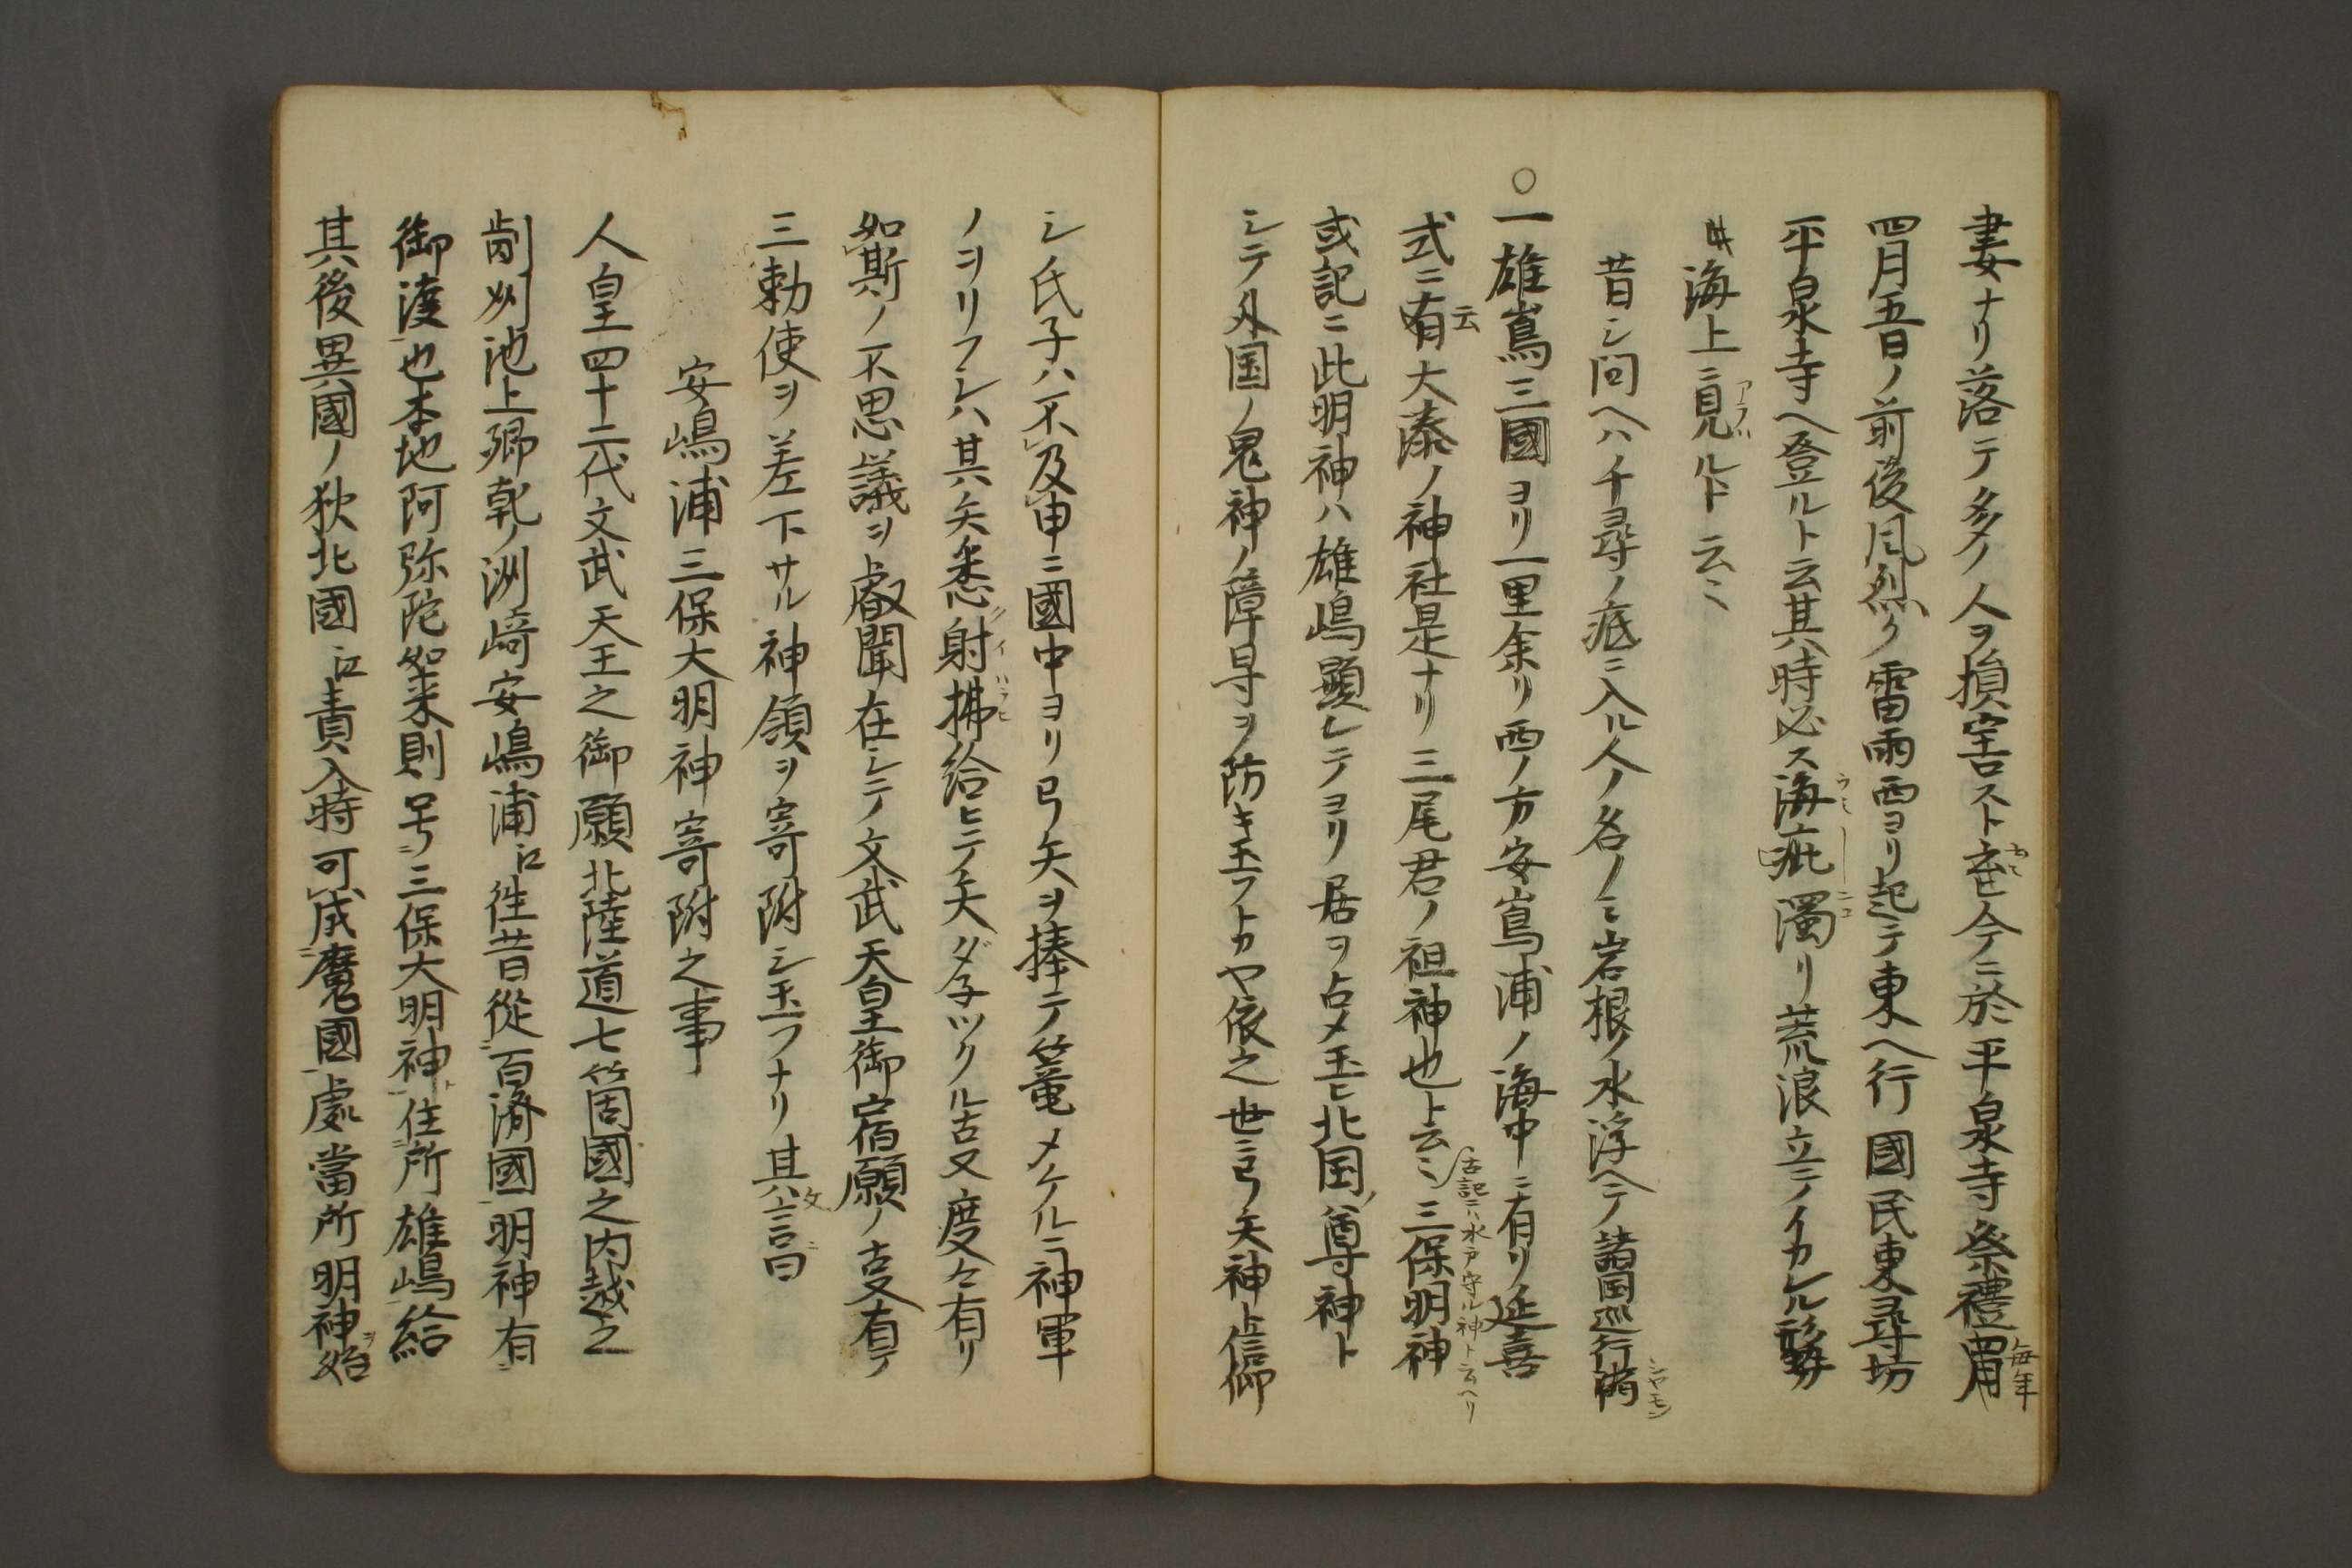 妻ナリ落テ多ノ人ヲ損害スト云ヒ今ニ於平泉寺祭禮毎年四月
四月五日ノ前後風烈ク雷雨西ヨリ起テ東ヘ行國民東尋坊
平泉寺ヘ登ルト云其時必ス海疵濁リ荒浪立テイカレル形勢
海上ニ見ルト云〻
昔シ問ヘハ千尋ノ底ニ入ル人ノ名ノミ岩根ノ水浮ヘテ諸国巡行
〇一雄嶌三國ヨリ一里余リ西ノ方安嶌浦ノ海中ニ有リ延喜
式ニ云有大湊ノ神社是ナリ三尾君ノ祖神也ト云〻古記ニハ水戸守ル神ト云ヘリ三保明神
或記ニ此明神ハ雄嶋顕レテヨリ居ヲ占メ玉ヒ北国ノ尊神ト
シテ外国ノ鬼神ノ障㝵ヲ防キ玉フトカヤ依之世ニ弓矢神ト信仰
シ氏子ハ不及申ニ國中ヨリ弓矢ヲ捧テ篭メケルニ神軍
ノヲリフシハ其矢悉ク射拂給ヒテ矢ダ子ツクル古又度々有リ
如斯ノ不思議ヲ叡聞在シテ文武天皇御宿願ノ古又有テ
三勅使ヲ差下サル神領ヲ寄附シ玉フナリ其文ニ言曰
安嶋浦三保大明神寄附之事
人皇四十二代文武天王之御願北陸道七箇國之内越之
前刕池上郷乾ノ洲﨑安嶋浦江徃昔從百済國明神有
御渡也本地阿弥陀如来則号三保大明神住所雄嶋給
其後異國ノ狄北國江責入時可成魔國處當所明神ヲ始